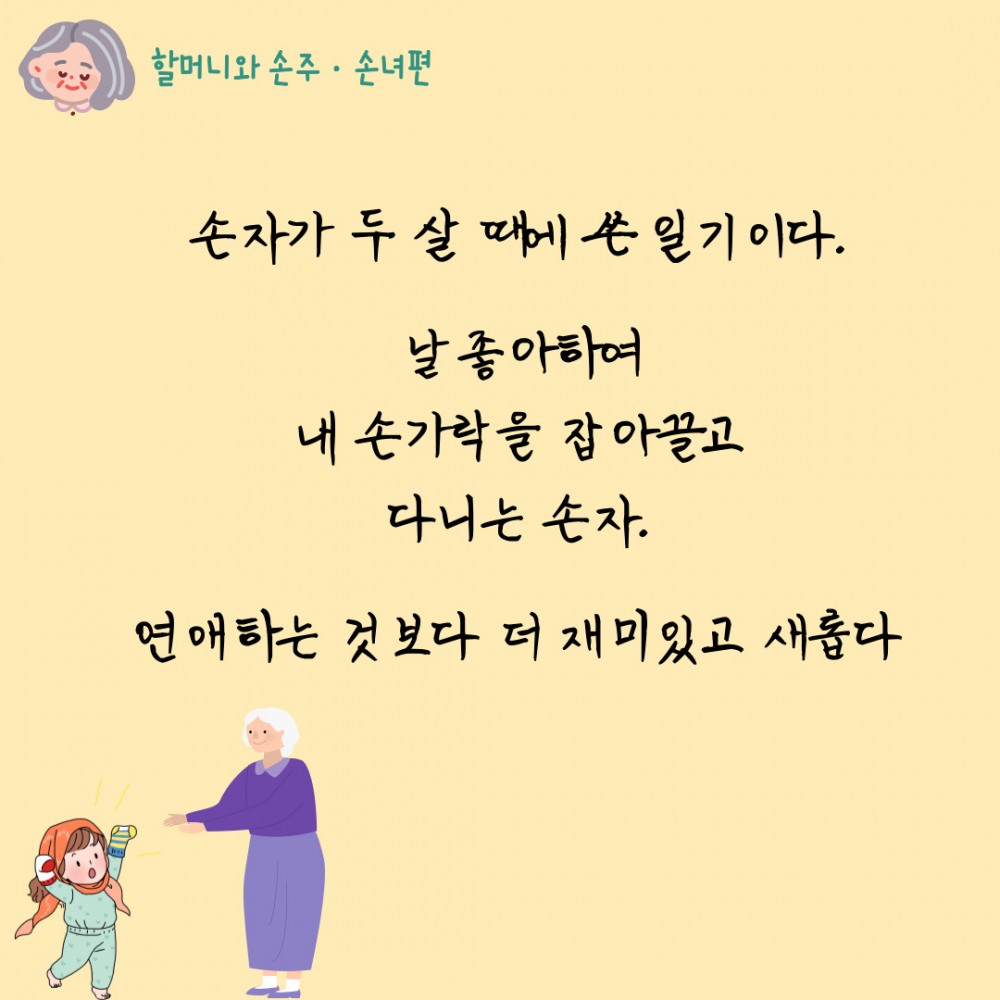 할머니와 손주 · 손녀편
손자가 두 살 때에 쓴 일기이다.
날 좋아하여
내 손가락을 잡아끌고
다니는 손자.
연애하는 것보다 더 재미있고 새롭다